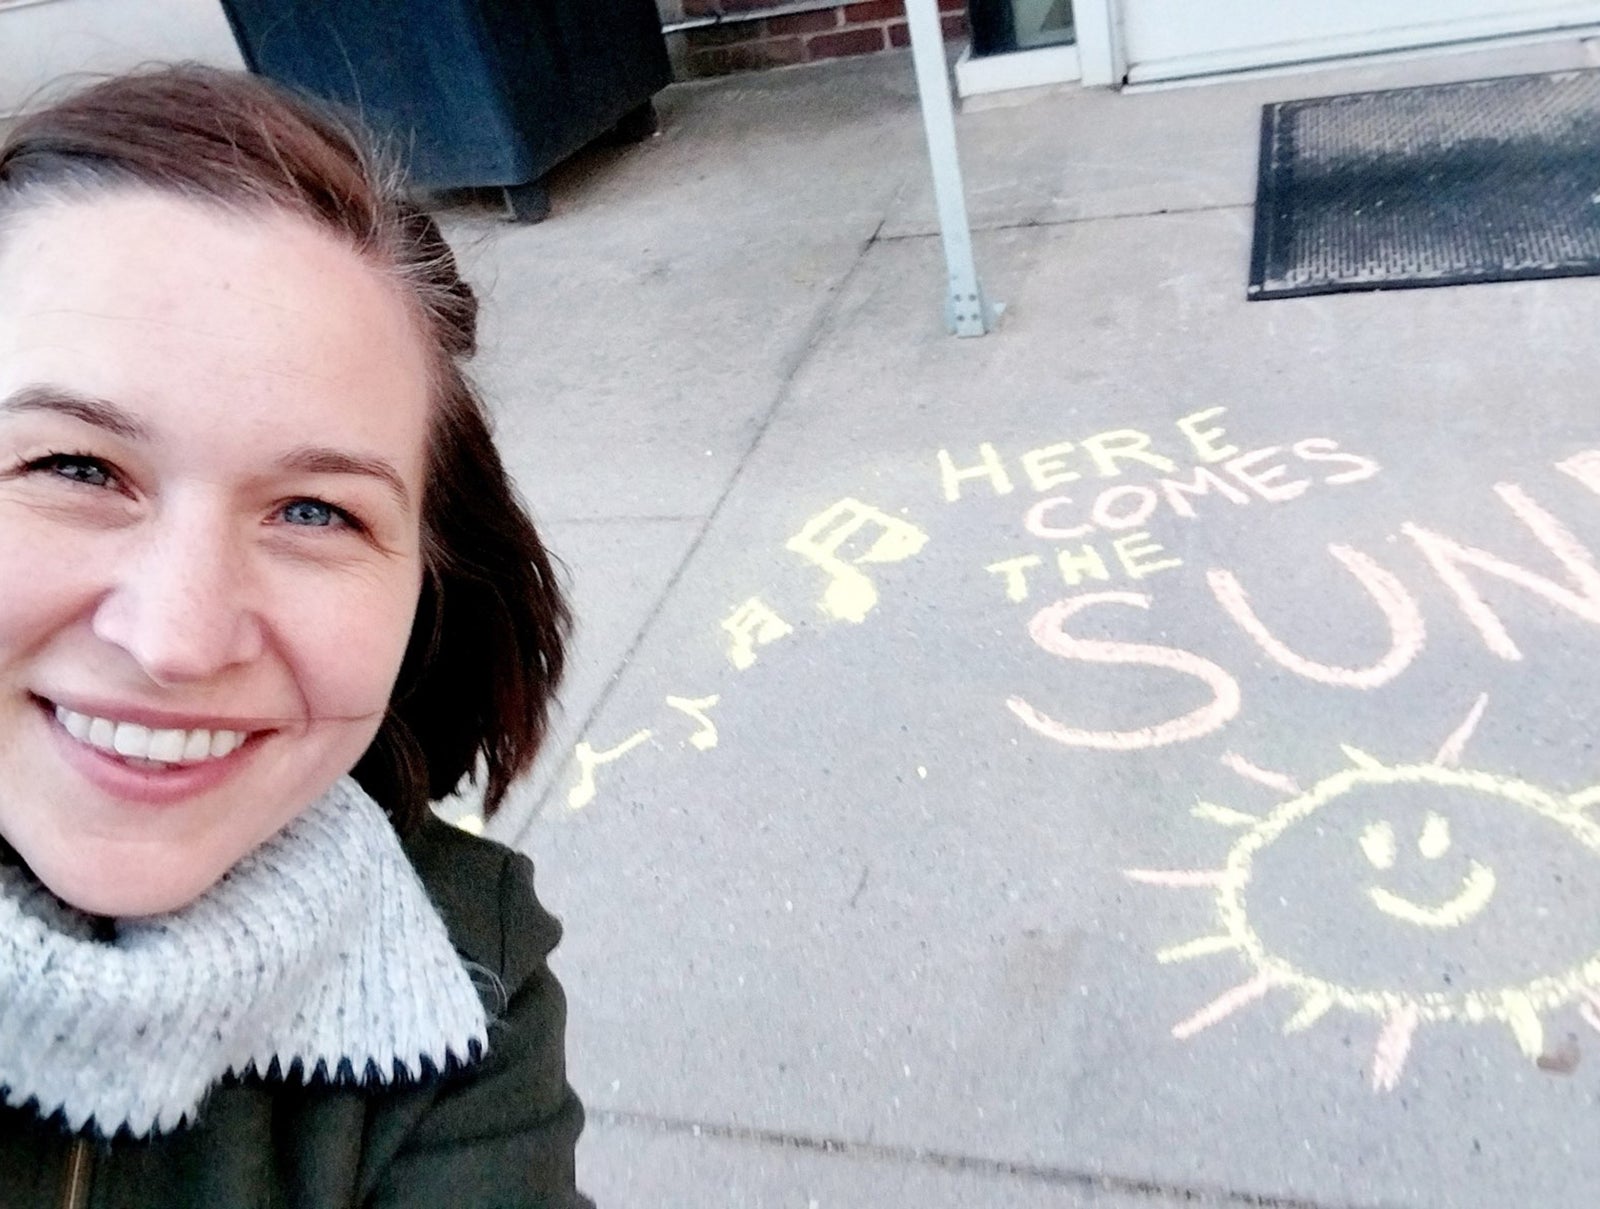 HERE
COMES
THE
SUN